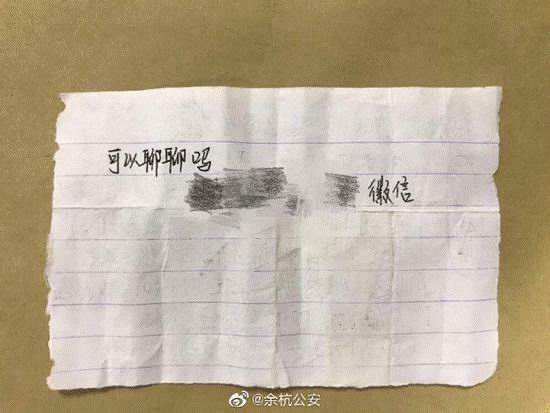 可以聊聊吗
微信
@余杭公安